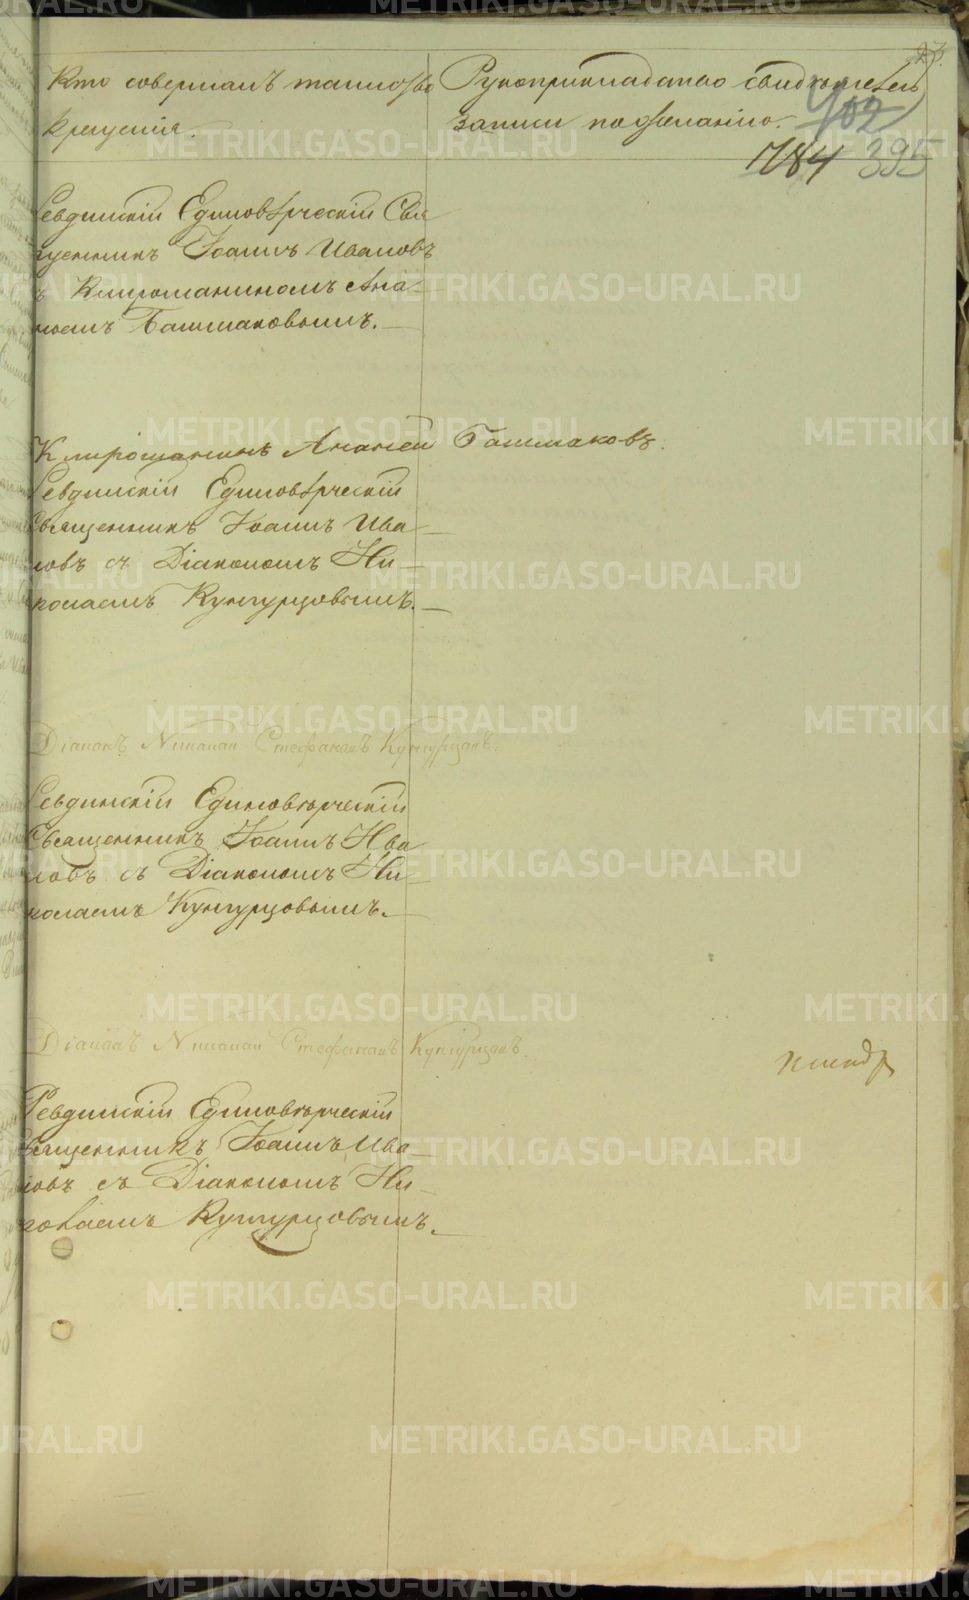 Кто совершалъ таинство
крещенія.
Рукоприкладство свидѣтелей
записи по желанію.
402
1784 395
Ревдинскій Единовѣрческій Свя
щенникъ Іоаннъ Ивановъ
съ Клирошаниномъ Ана-
ніемъ Башмаковымъ.
Клирошанинъ Ананій Башмаковъ.
Ревдинскій Единовѣрческій
Священникъ Іоаннъ Ива-
новъ съ Діакономъ Ни-
колаемъ Кунгурцовымъ.
Діаконъ Николай Стефановъ Кунгурцовъ.
Ревдинскій Единовѣрческій
Священникъ Іоаннъ Ива
новъ съ Діакономъ Ни-
колаемъ Кунгурцовымъ.
Діаконъ Николай Стефановъ Кунгурцовъ.
Ревдинскій Единовѣрческій
Священникъ Іоаннъ Ива-
новъ съ Діакономъ Ни-
колаемъ Кунгурцовымъ.
METRIKI.GASO-URAL.RU